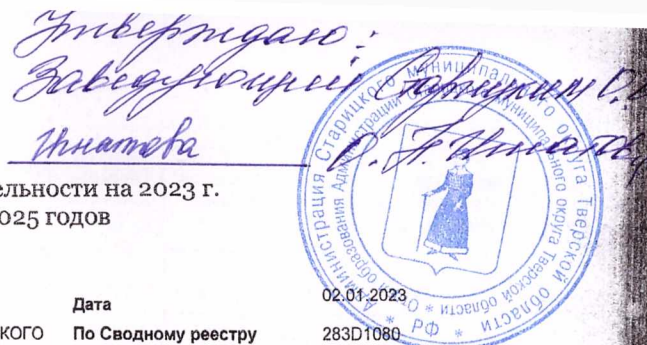 Утверждаю:
Заведующий
Игнатова О. Г. Игнатова
ельности на 2023 г.
025 годов
Дата 02.01.2023
КОГО По Сводному реестру 283D1080
Администрация Старицкого муниципального округа Тверской области
Отдел образования Администрации Старицкого муниципального округа Тверской области
* РФ *